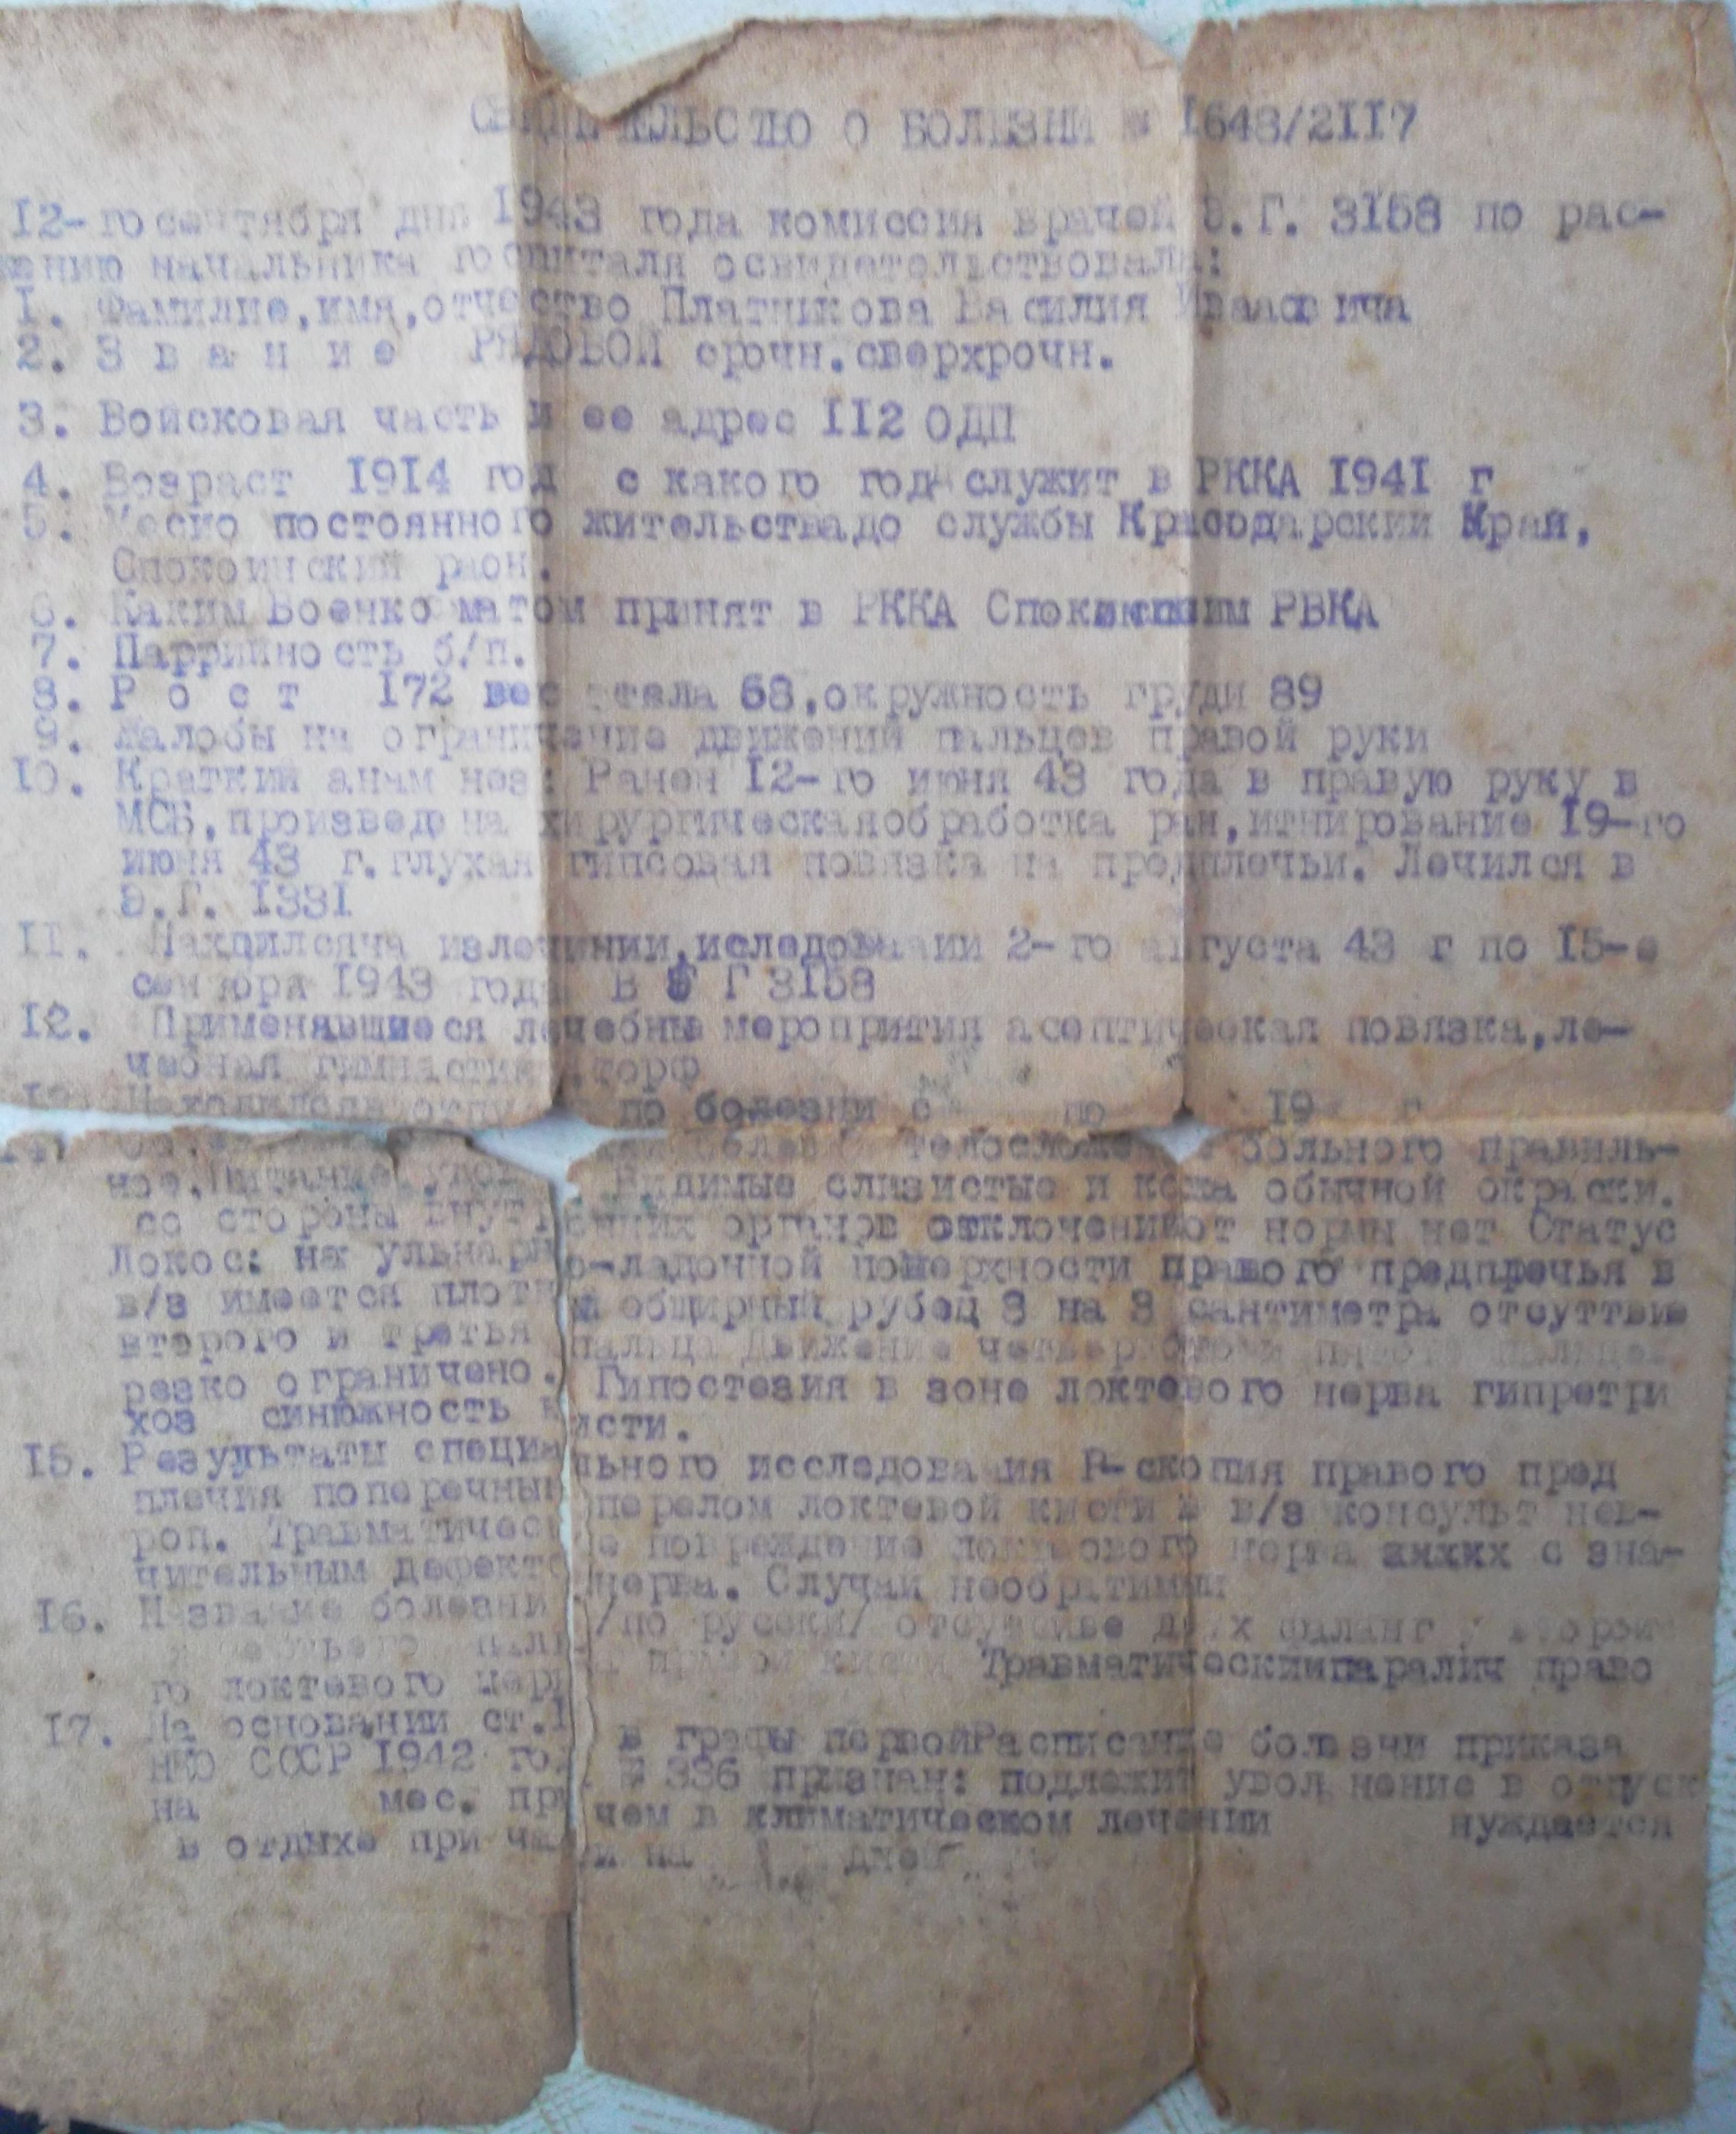 СВИДЕТЕЛЬСТВО О БОЛЕЗНИ № 1648/2117
12-го сентября дня 1943 года комиссия врачей Э.Г. 3158 по рас-
жению начальника госпиталя освидетельствовала:
1. Фамилие,имя,отчество Платникова Василия
2. З в а н и е РЯДОВОЙ срочн.сверхрочн.
3. Войсковая часть и ее адрес 112 ОДП
4. Возраст 1914 год с какого года служит в РККА 1941 г
5. постоянного жительствадо службы Красодарский Край,
Спокоинский раон.
6. Каким Военкоматом принят в РККА РВКА
7. Паррийность б/п.
8. Р о с т 172 вес тела 68,окружность груди 89
9. Жалобы на ограничение движений пальцев правой руки
10. Краткий анамнез: Ранен 12-го июня 43 года в правую руку в
МСБ,произведена хирургическаяобработка ран, 19-го
июня 43 г.глухая гипсовая повязка на предплечьи. Лечился в
Э.Г. 1331
11. 2-го августа 43 г по 15-е
1943 года В Э Г 3158
12. Применявшиеся лечебные меропрития асептическая повязка,ле-
чебная гимнастика торф
13. по болезни с по 19 г
14. больного правиль-
ное.Питание Видимые слизистые и кожа обычной окраски.
со стороны внутренних органов нормы нет Статус
Локос: на ульнарно-ладочной поверхности правого предплечья в
в/з имеется плотный обширный рубец 3 на 3 сантиметра отсуттвие
второго и третья пальца Движение
резко ограничено. Гипостезия в зоне локтевого нерва гипретри
хоз синюжность кисти.
15. Результаты специального исследования Р-скопия правого пред
плечия поперечный перелом локтевой кисти в в/з консульт нев-
роп. Травматическое повреждение локтевого нерва с зна-
чительным дефектом нерва. Случай необратимый
16. Название болезни /по русски/ отсутсвие двух фаланг у
правой кисти Травматическийпаралич право
го локтевого нерва
17. На основании ст.1 в графы первойРасписание болезни приказа
НКО СССР 1942 года № 336 признан: подлежит уволнение в отпуск
на мес. причем в климатическом лечении нуждается
в отдыхе при части на дней